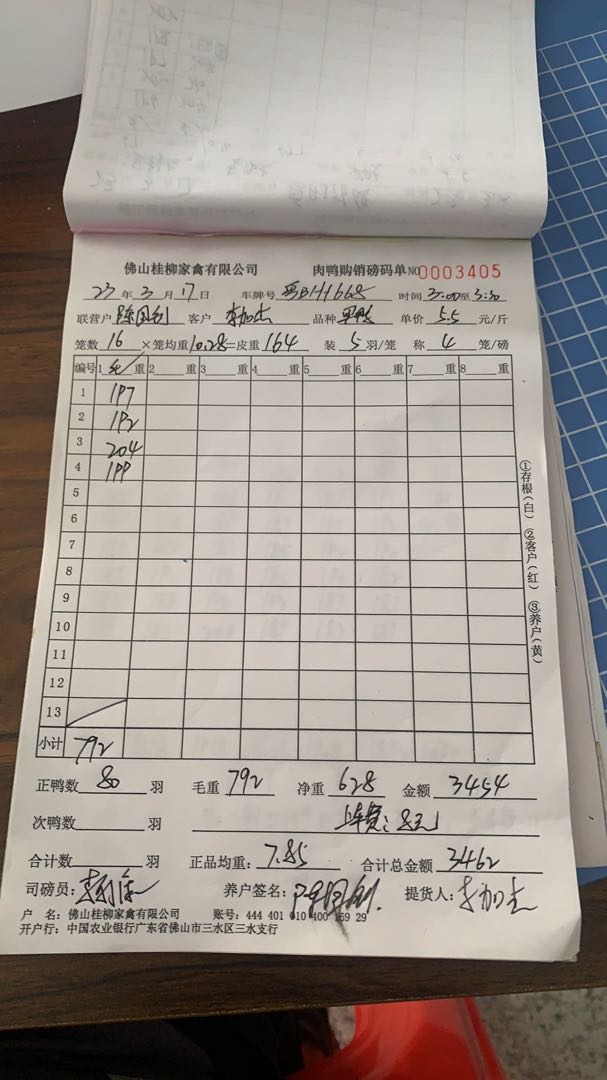 佛山桂柳家禽有限公司 肉鸭购销磅码单 NO 0003405
23 年 3 月 17 日 车牌号 粤BH1668 时间 3:00 至 3:30
联营户 陈国创 客户 李加杰 品种 单价 5.5 元/斤
笼数 16 ×笼均重 10.28 =皮重 164 装 5 羽/笼 称 4 笼/磅
编号 1 重 2 重 3 重 4 重 5 重 6 重 7 重 8 重
1 197
2 192
3 204
4 199
5
6
7
8
9
10
11
12
13
小计 792
正鸭数 80 羽 毛重 792 净重 628 金额 3454
次鸭数 羽 上车费：8元
合计数 羽 正品均重： 7.85 合计总金额 3462
司磅员： 养户签名： 陈国创 提货人： 李加杰
户 名：佛山桂柳家禽有限公司 账号：444 401 010 400 169 29
开户行：中国农业银行广东省佛山市三水区三水支行
①存根(白) ②客户(红) ③养户(黄)